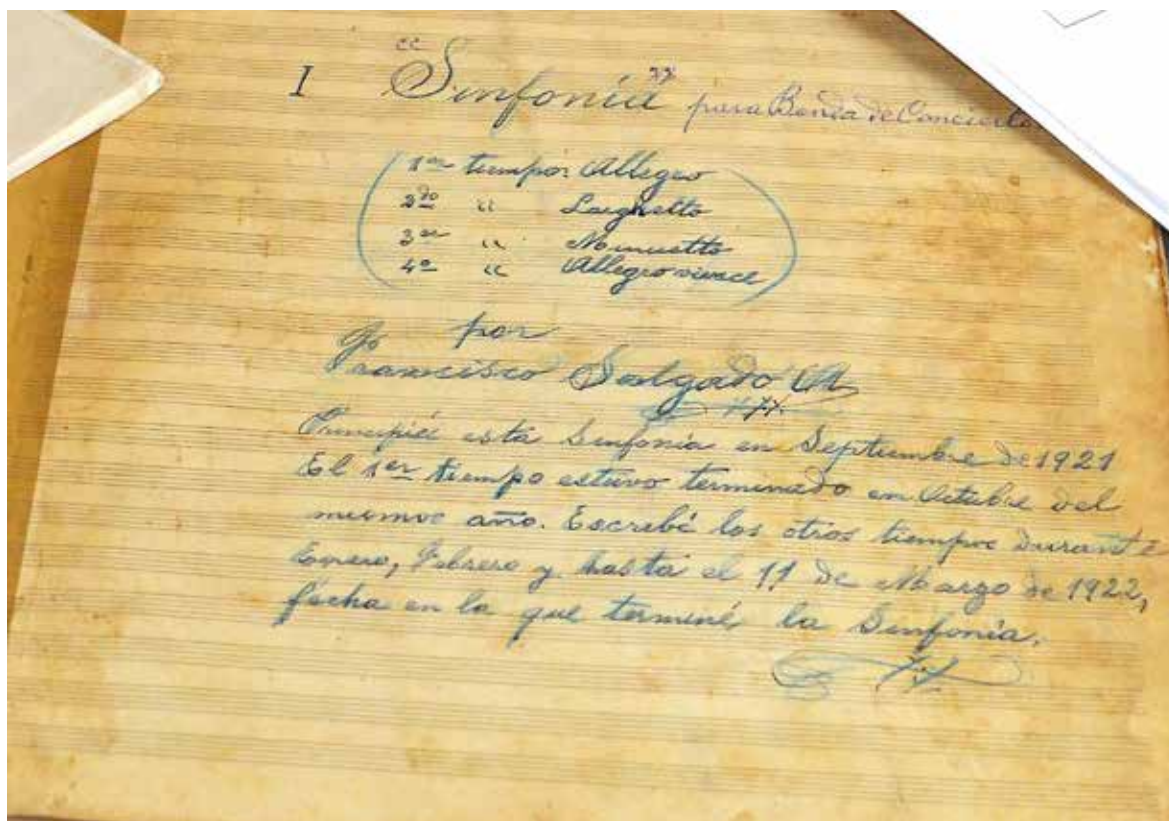 I "Sinfonía" para Banda de Concierto
1er tiempo: Allegro
2do " Larghetto
3er " Minuetto
4o " Allegro vivace
por
Francisco Salgado A.
Principié esta Sinfonía en Septiembre de 1921
El 1er tiempo estuvo terminado en Octubre del
mismo año. Escribí los otros tiempos durante
Enero, Febrero y hasta el 11 de Marzo de 1922,
fecha en la que terminé la Sinfonía.